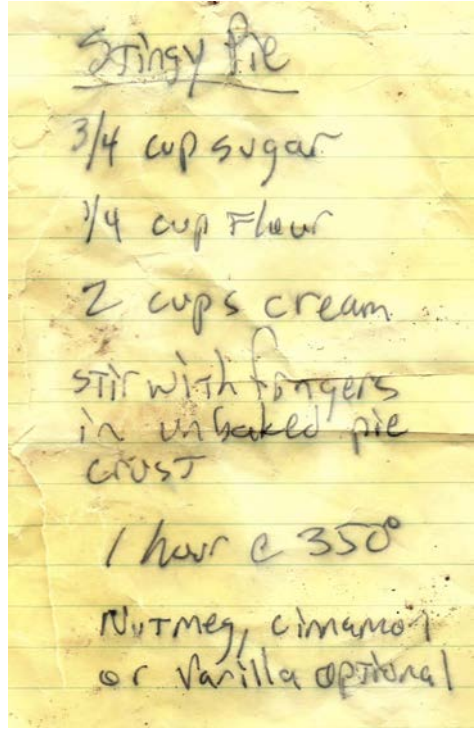 Stingy Pie
3/4 cup sugar
1/4 cup Flour
2 cups cream
stir with fingers
in unbaked pie
crust
1 hour @ 350°
Nutmeg, cinnamon
or Vanilla optional